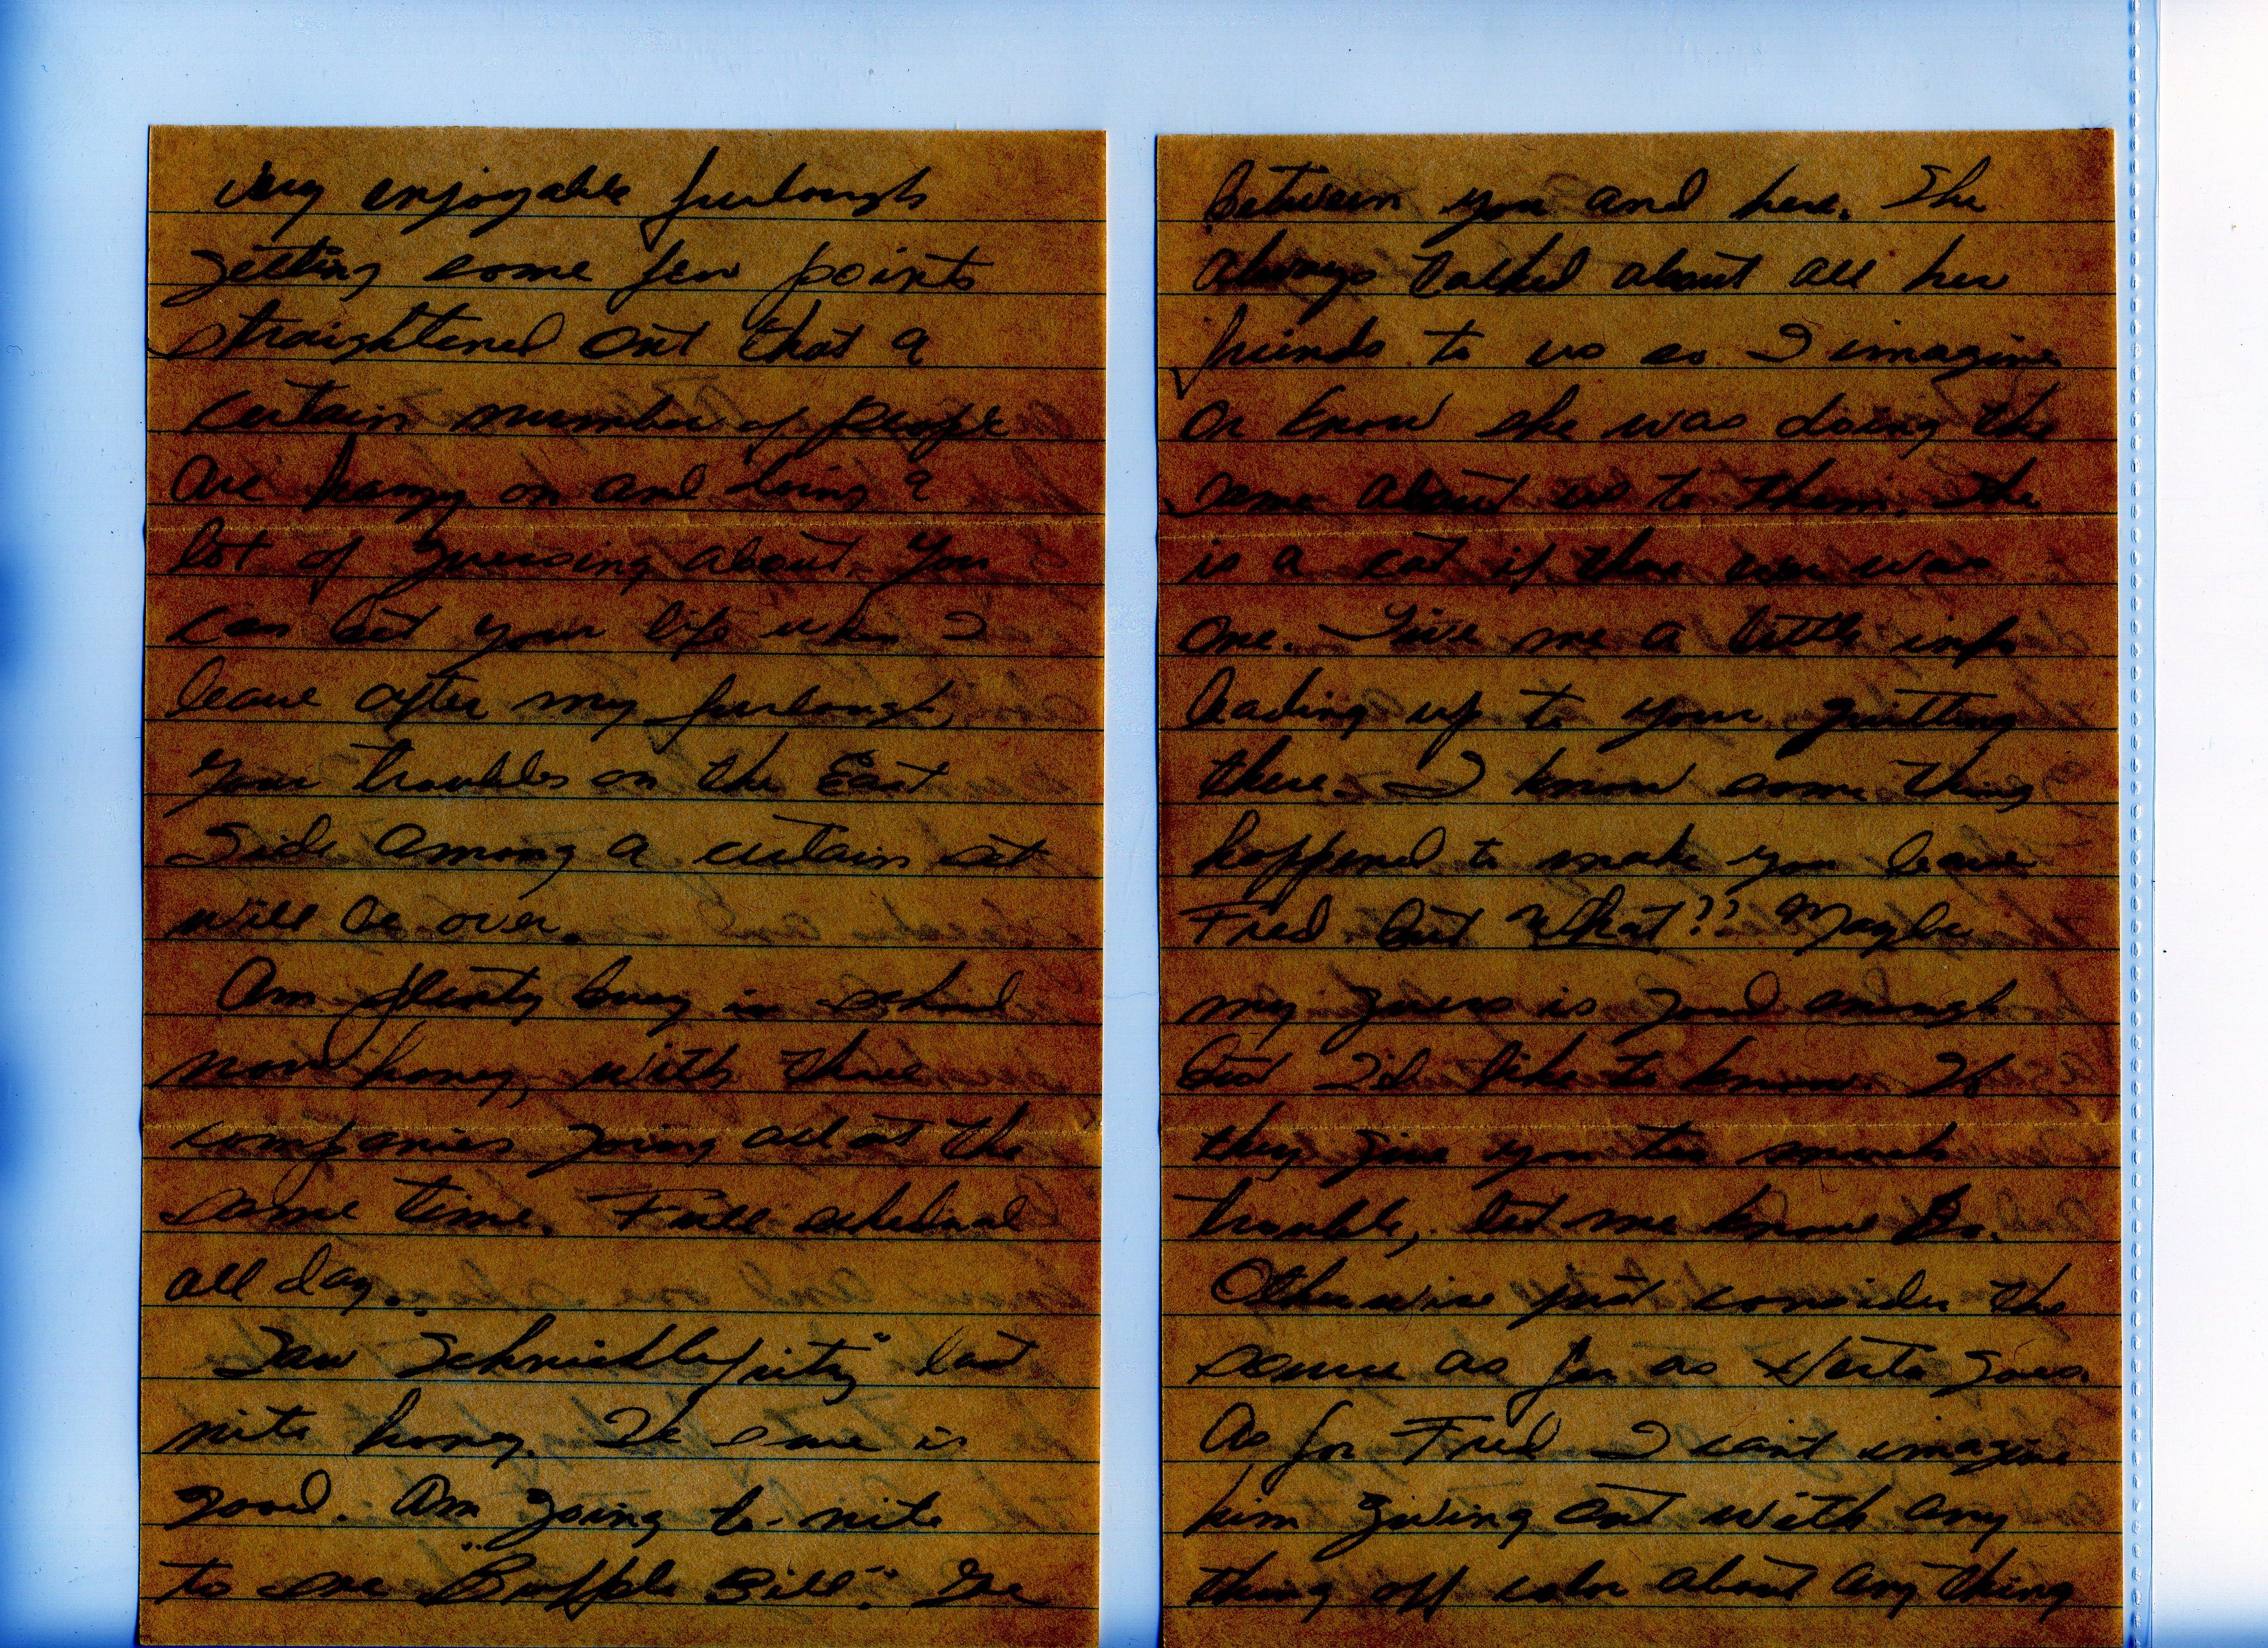 very enjoyable furlough
getting some few points
straightened out that a
certain number of people
are hangy on and doing a
lot of guessing about. You
can bet your life when I
leave after my furlough,
your troubles on the East
Side among a certain set
will be over.
Am plenty busy in school
now honey, with three
companies going all at the
same time. Full schedual
all day.
Saw Schnickle
last
nite honey. It
is
good. Am going to-nite
to see "Buffalo Bill".
between you and her. She
always talked about all her
friends to us so I imagine
or know she was doing the
same about us to them. She
is a cat if there ever was
one. Give me a little info
leading up to your quitting
there. I know some thing
happened to make you leave
Fred but what?? Maybe
my guess is good enough
but I'd like to know. If
they give you too much
trouble, let me know
Otherwise just consider the
source as far as
goes.
As for Fred I can't imagine
him giving out with any
thing off color about any thing